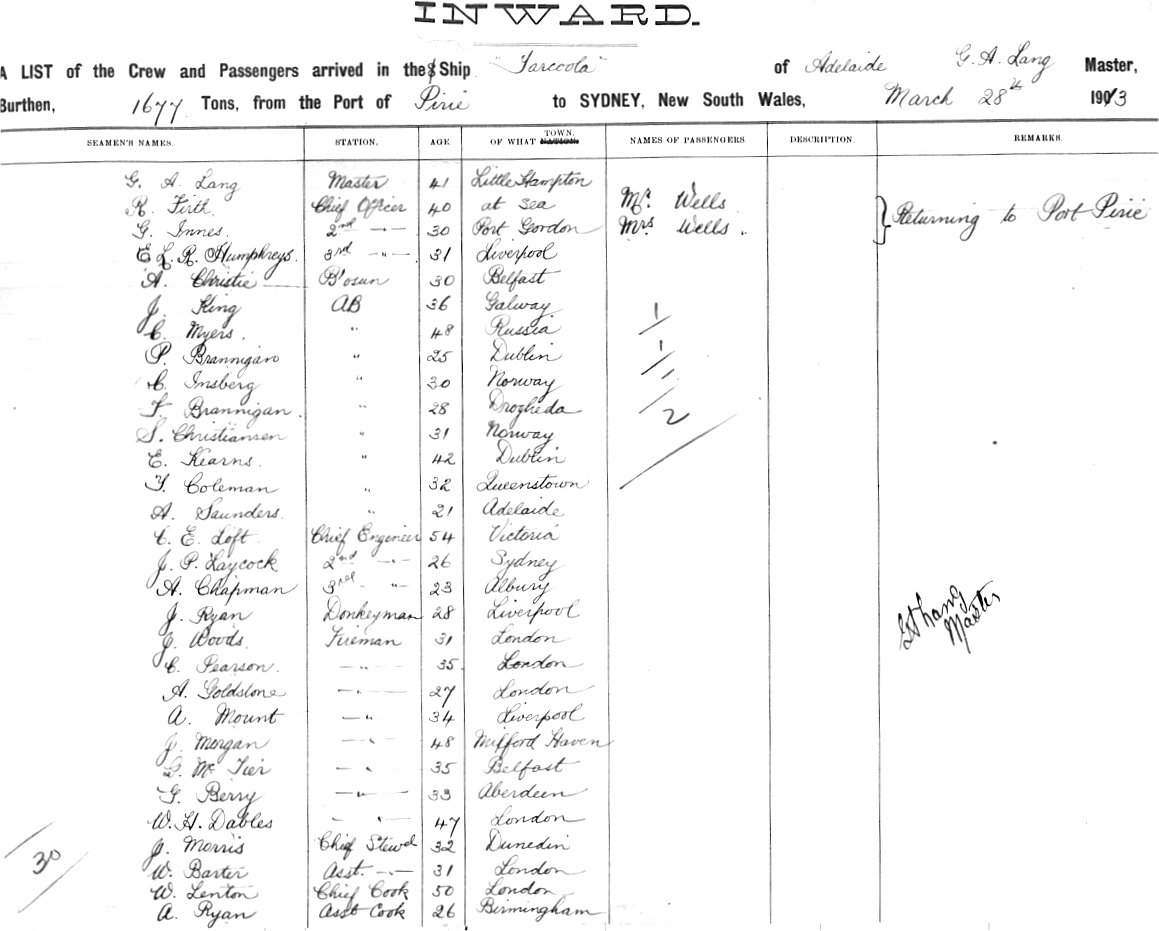 INWARD.
A LIST of the Crew and Passengers arrived in the Ship "Tarcoola" of Adelaide G. A. Lang Master,
Burthen, 1677 Tons, from the Port of Pirie to SYDNEY, New South Wales, March 28th 1903
SEAMEN'S NAMES. STATION. AGE. OF WHAT TOWN. NATION. NAMES OF PASSENGERS DESCRIPTION. REMARKS.
G. A. Lang Master 41 Little Hampton
R. Firth Chief Officer 40 at Sea Mr. Wells
G. Innes. 2nd -"- 30 Port Gordon Mrs Wells. } Returning to Port Pirie
E. L. R. Humphreys. 3rd -"- 31 Liverpool
A. Christie B'osun 30 Belfast
J. King AB 36 Galway 1
C. Myers. " 48 Russia
P. Brannigan " 25 Dublin 1
C. Insberg " 30 Norway 1
F. Brannigan. " 28 Drogheda 2
S. Christiansen " 31 Norway
E. Kearns. " 42 Dublin
T. Coleman " 32 Queenstown
A. Saunders. " 21 Adelaide
C. E. Loft. Chief Engineer 54 Victoria
J. P. Laycock 2nd -"- 26 Sydney
A. Chapman 3rd -"- 23 Albury
J. Ryan Donkeyman 28 Liverpool
J. Woods. Fireman 31 London
C. Pearson. -"- 35 London
A. Goldstone -"- 27 London
A. Mount -"- 34 Liverpool
J. Morgan -"- 48 Milford Haven
Mc Tier -"- 35 Belfast
G. Berry -"- 33 Aberdeen
W. H. Dables -"- 47 London
J. Morris Chief Stewd 32 Dunedin
W. Barter Asst. -"- 31 London
W. Lenton Chief Cook 50 London
A. Ryan Asst Cook 26 Birmingham
30
GA Lang
Master